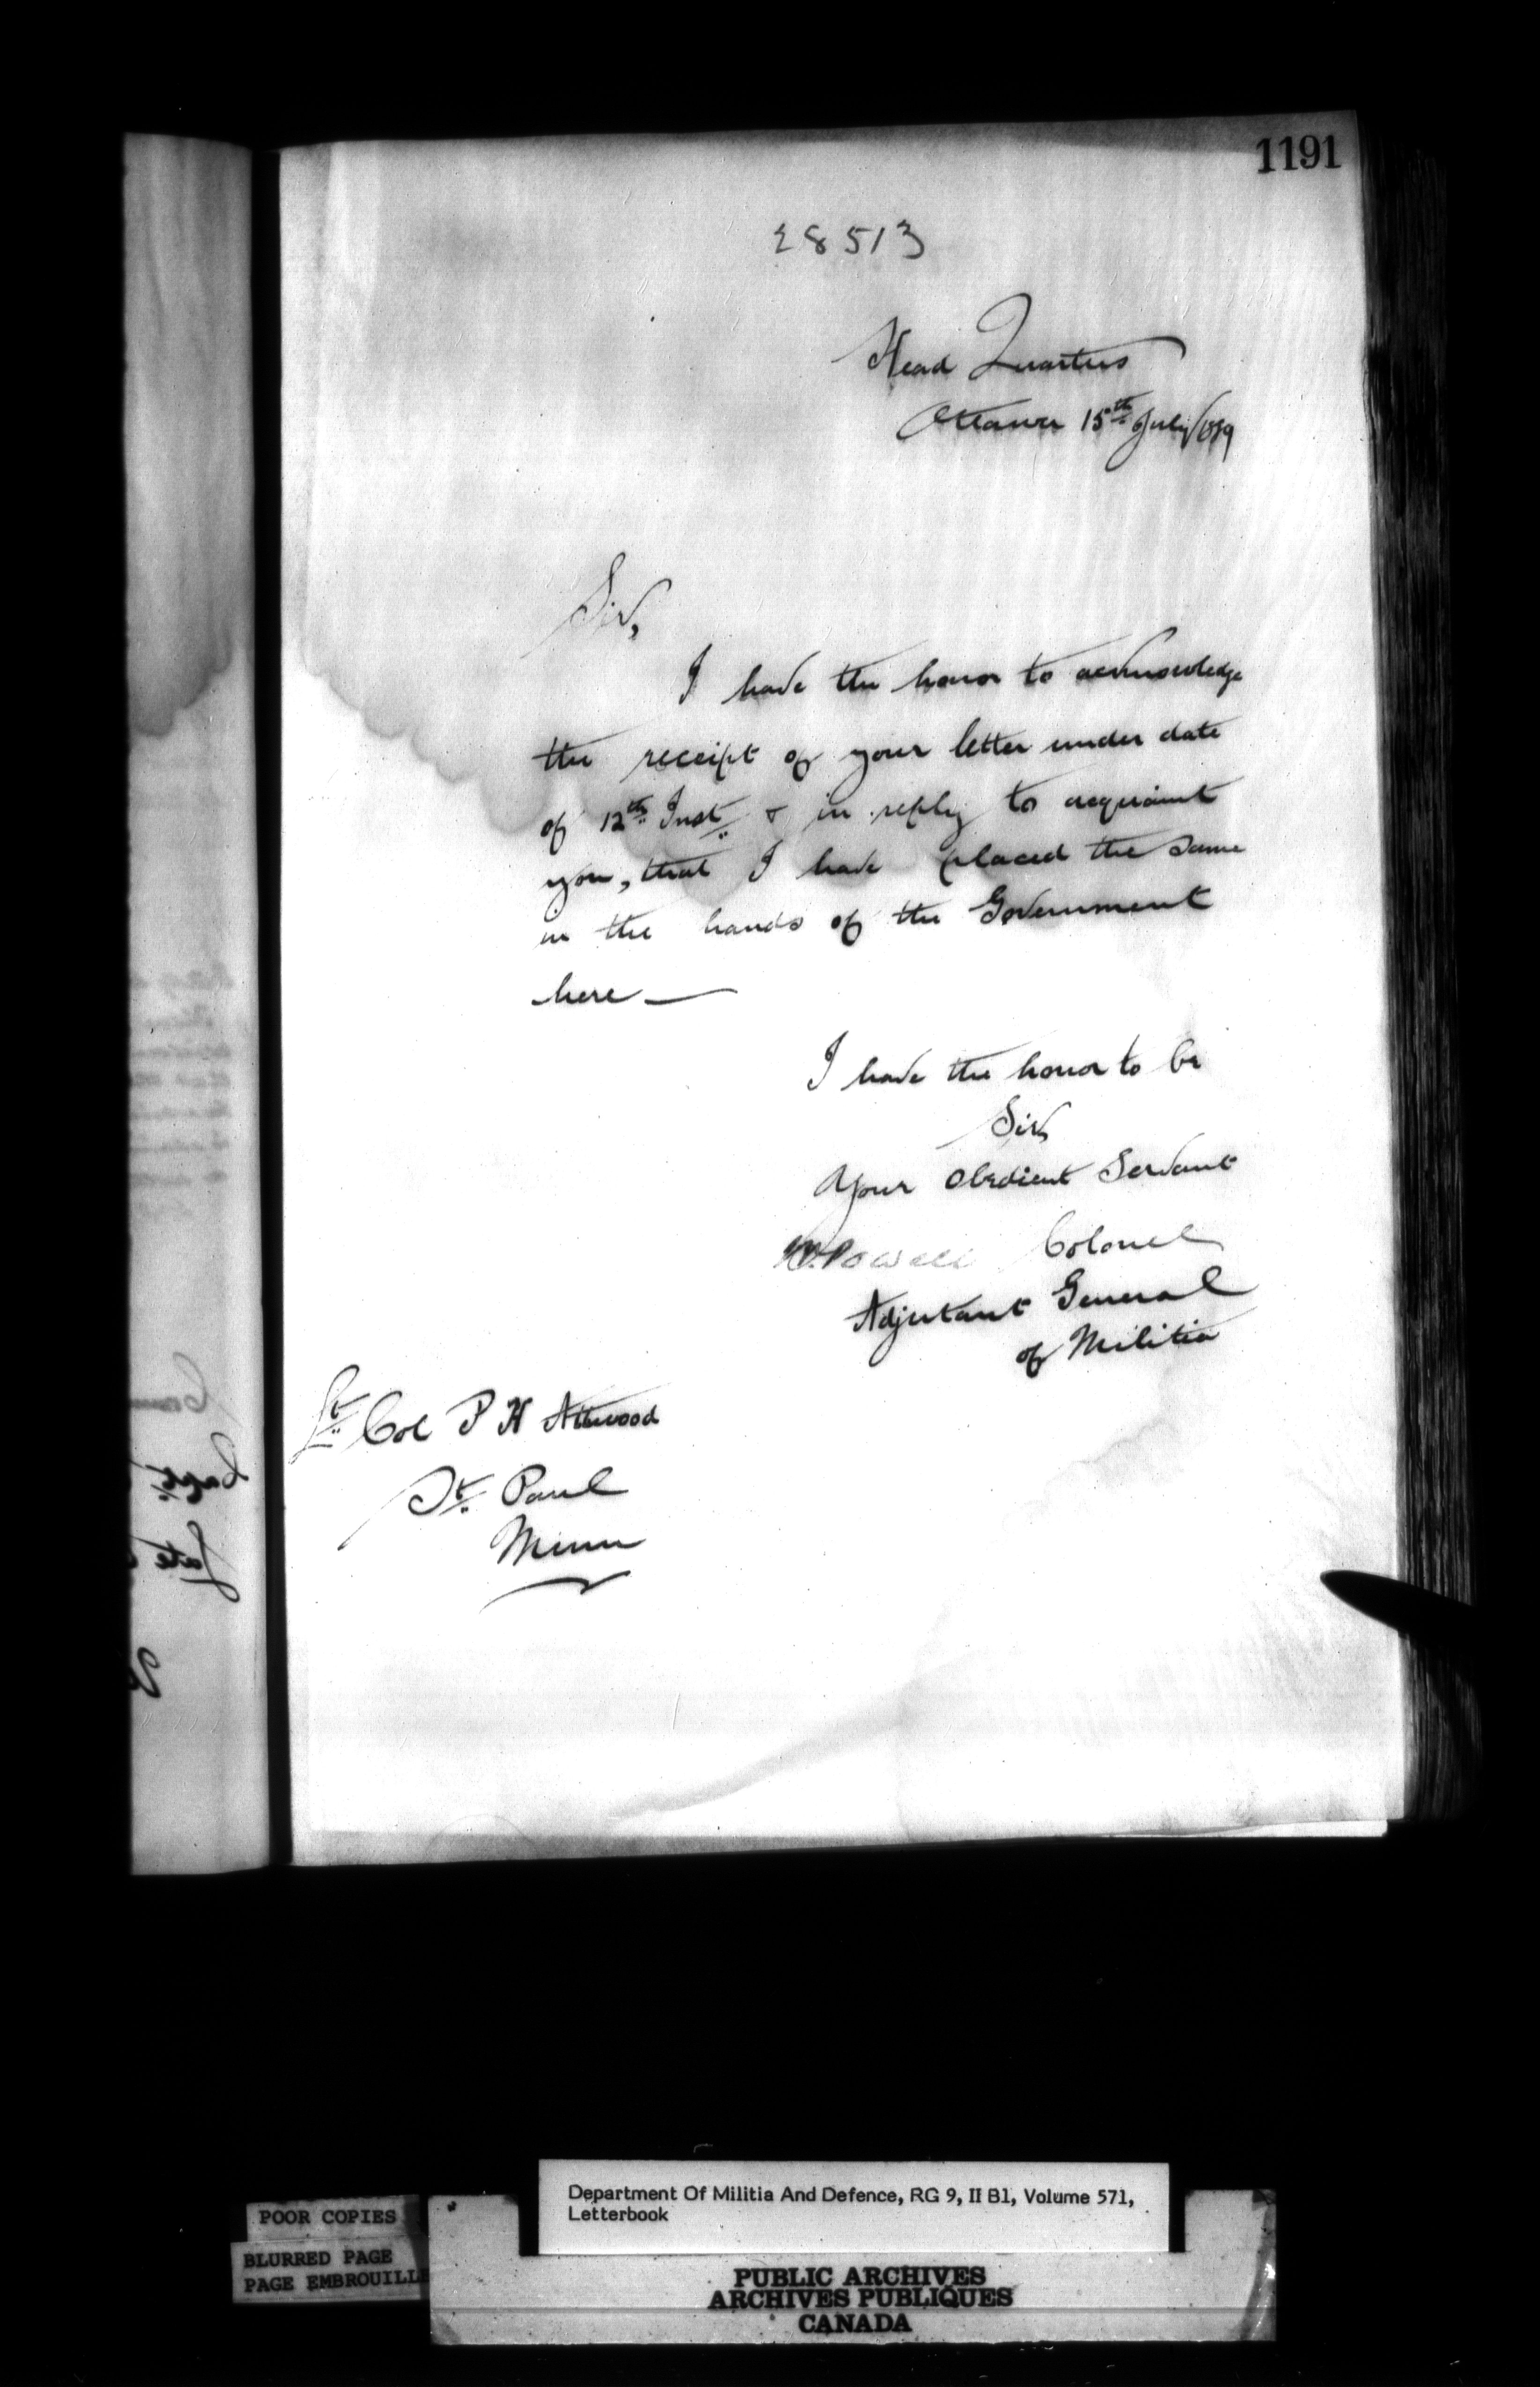 1191
28513
Head Quarters
Ottawa 15th July/89
Sir,
I have the honor to acknowledge
the receipt of your letter under date
of 12th Inst & in reply to acquaint
you, that I have placed the same
in the hands of the Government
here —
I have the honor to be
Sir,
Your Obedient Servant
W. Powell Colonel
Adjutant General
of Militia
Lt Col P H Attwood
St. Paul
Minn
Department Of Militia And Defence, RG 9, II B1, Volume 571,
Letterbook
POOR COPIES
BLURRED PAGE
PAGE EMBROUILLE
PUBLIC ARCHIVES
ARCHIVES PUBLIQUES
CANADA